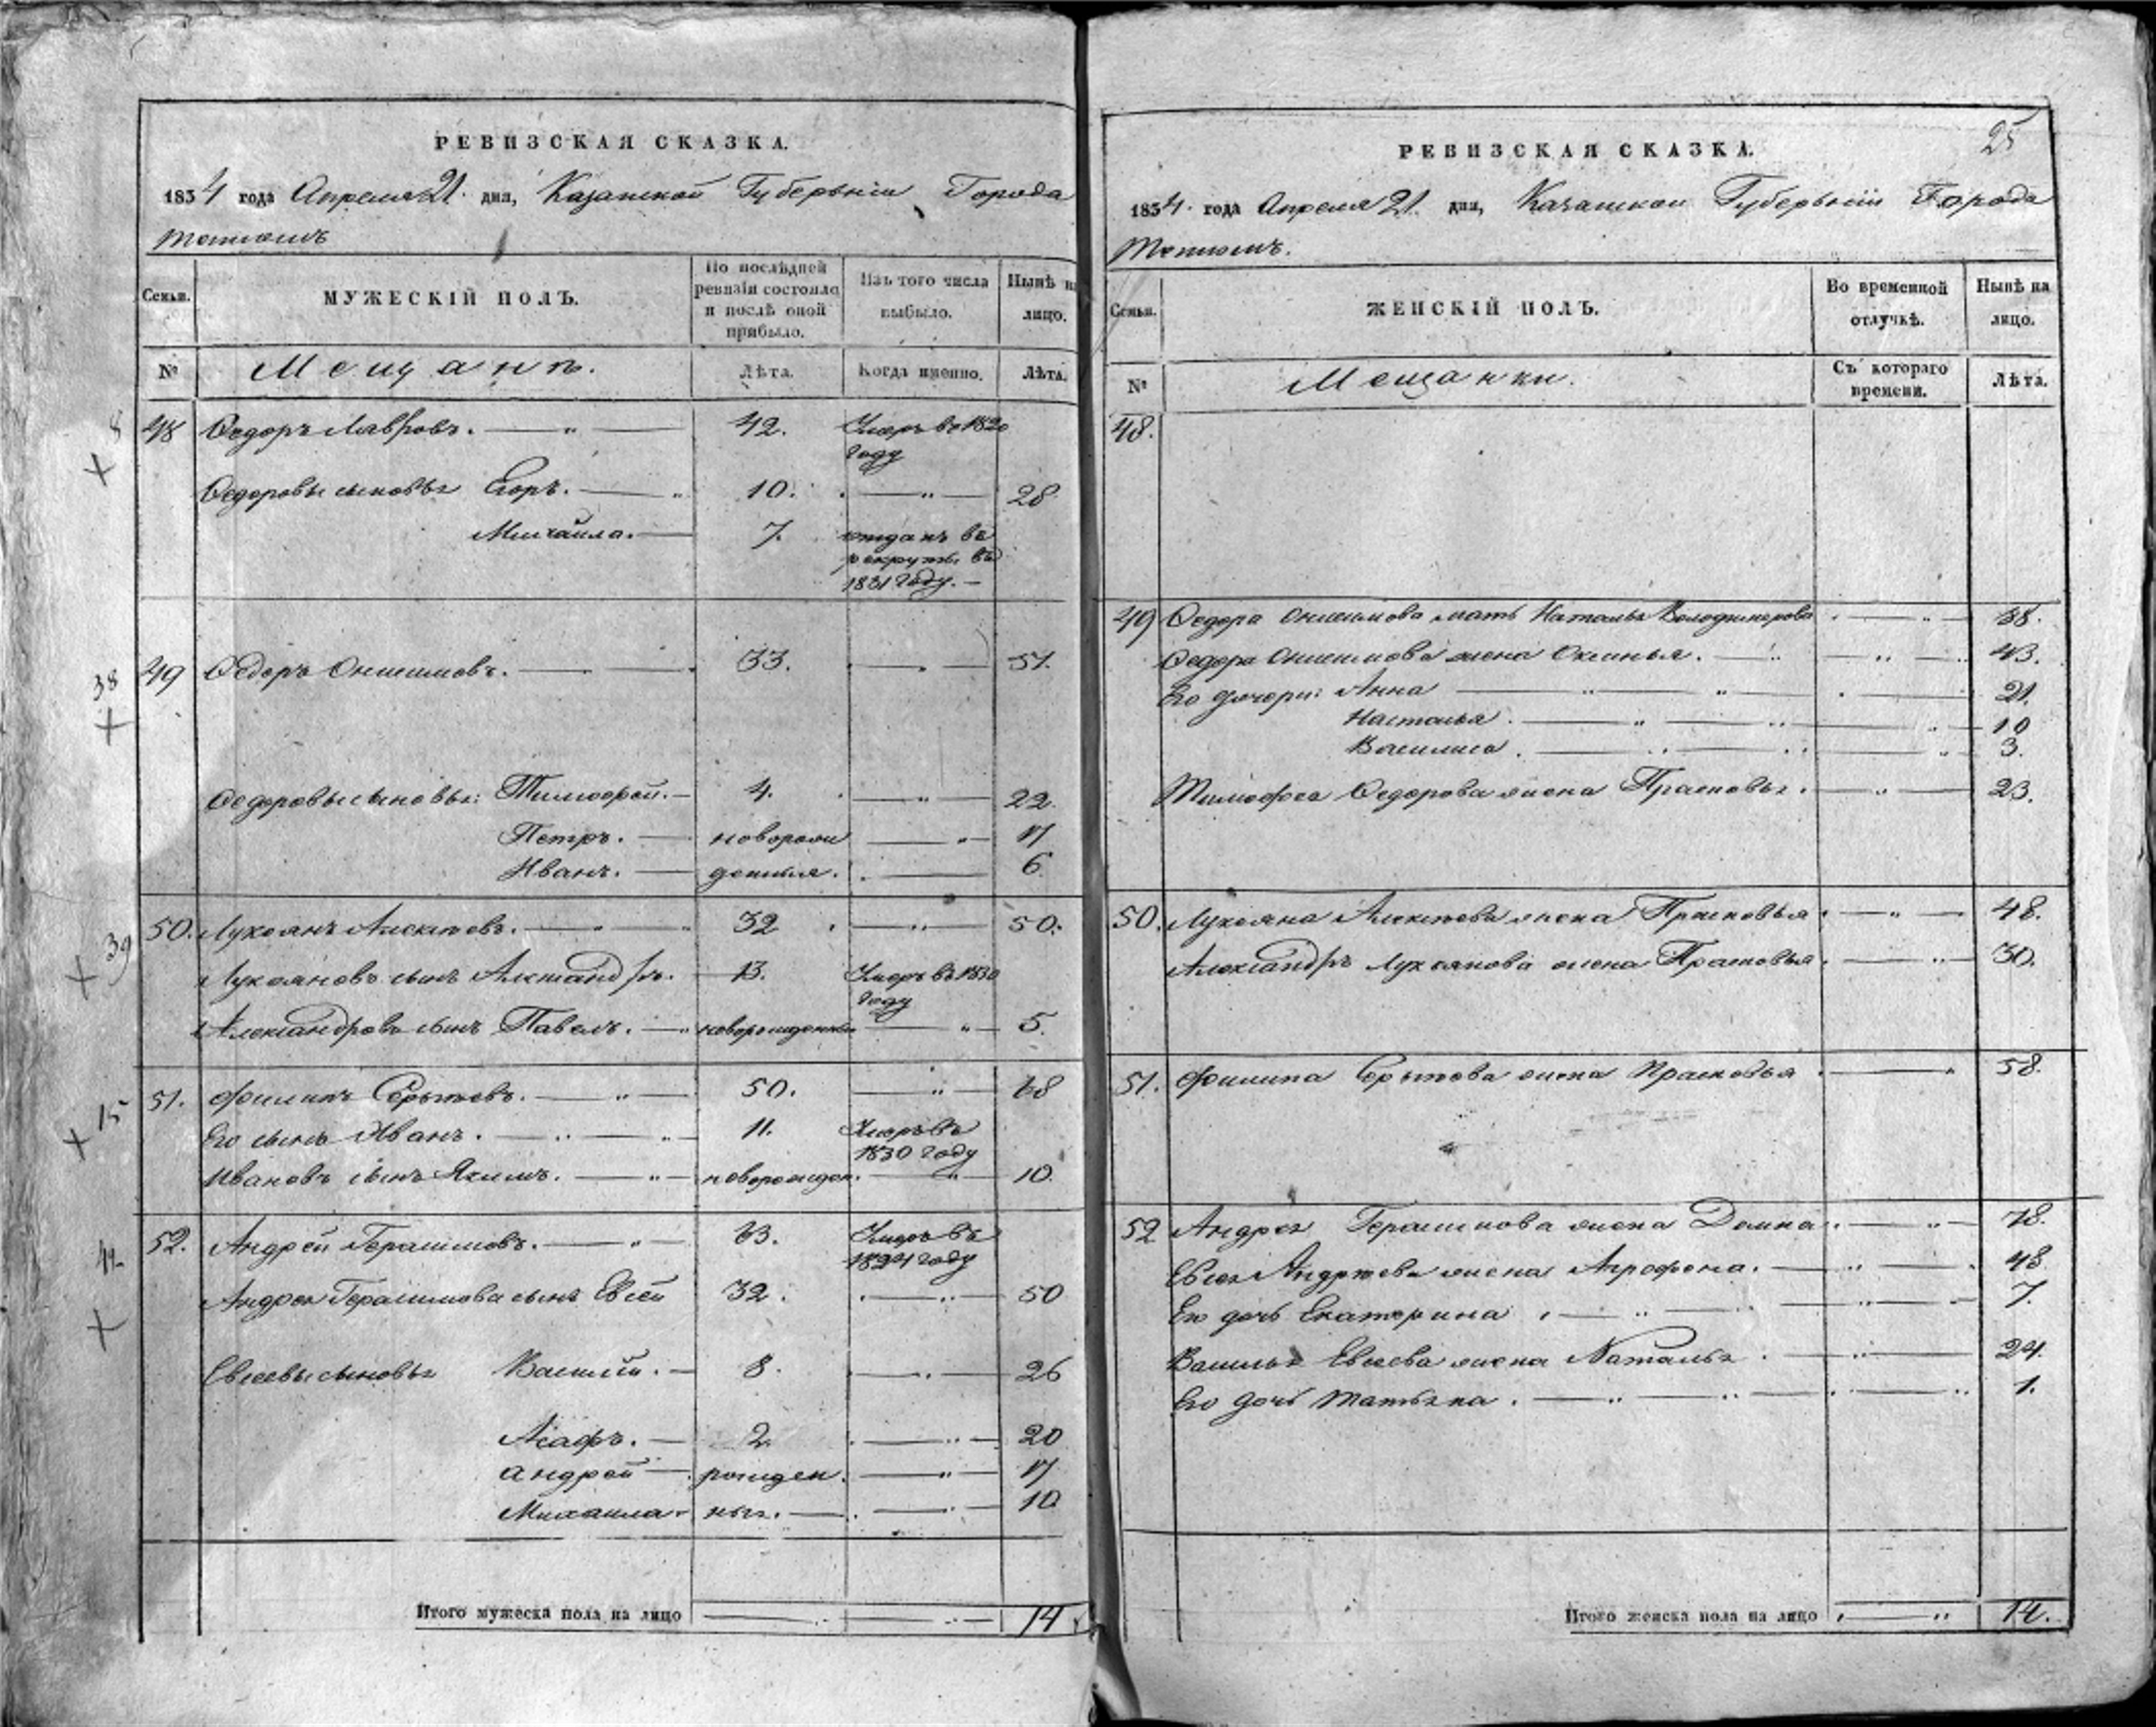 РЕВИЗСКАЯ СКАЗКА.
1834 года Апреля 21. дня, Казанской Губернiи Города
СЕмьи.
МУЖЕСКIЙ ПОЛЪ.
По послѣдней ревизiи состояло и послѣ оной прибыло.
Изъ того числа выбыло.
Нынѣ на лицо.
№
Мещанъ.
Лѣта.
Когда именно.
Лѣта.
8
48 Федоръ Лавровъ. 42. Умеръ въ 1820 году
Федоровы сыновья Егоръ. 10. 28
Михайла. 7. отданъ въ рекруты въ 1831 году.
38
49 Федоръ Онисимовъ. 33. 51.
Федоровы сыновья: Тимофей. 4. 22.
Петръ. новорож 17
Иванъ. денныя. 6
39
50. Лукоянъ Алексѣевъ. 32 50.
Лукояновъ сынъ Александръ. 13. Умеръ въ 1830 году
Александрова сынъ Павелъ. новорожденный 5.
15
51. Филипъ 50. 68
Его сынъ Иванъ. 11. Умеръ въ 1830 году
Ивановъ сынъ Якимъ. новорожден. 10.
52. Андрей Герасимовъ. 63. Умеръ въ году
Андрея Герасимова сынъ Евсей 32. 50
Евсеевы сыновья Василiй. 8. 26
Асафъ. 2 20
Андрей рожден. 17
Михаила ныя. 10
Итого мужеска пола на лицо 14
25
РЕВИЗСКАЯ СКАЗКА.
1834. года Апреля 21. дня, Казанской Губернiи Города
Семьи.
ЖЕНСКIЙ ПОЛЪ.
Во временной отлучкѣ.
Нынѣ на лицо.
№
Мещанки.
Съ котораго времени.
Лѣта.
48.
49 Федора Онисимова мать Наталья Володимерова
Федора Онисимова жена Оксинья. 43.
Его дочери: Анна 21.
Настасья. 10
Василиса. 3.
Тимофея Федорова жена Прасковья. 23.
50. Лукояна Алексѣева жена Прасковья. 48.
Александръ Лукоянова жена Прасковья. 30.
51. Филипа жена Прасковья 58.
52 Андрея Герасимова жена Домна. 78.
Евсея Андрѣева жена Агрофена. 48.
Его дочь Екатерина 7.
Василья Евсеева жена Наталья. 24.
Его дочь Татьяна. 1.
Итого женска пола на лицо 14.